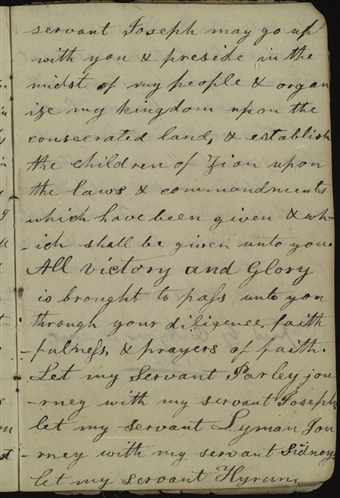 servant Joseph may go up
with you & preside in the
midst of my people & organ
ize my kingdom upon the
consecrated land, & establish
the children of Zion upon
the laws & commandments
which have been given & wh-
-ich shall be given unto you
All victory and Glory
is brought to pass unto you
through your diligence, faith
-fulness, & prayers of faith.
Let my Servant Parley jou
-rney with my servant Joseph,
let my servant Lyman Jou
rney with my servant Sidney,
let my servant Hyrum,